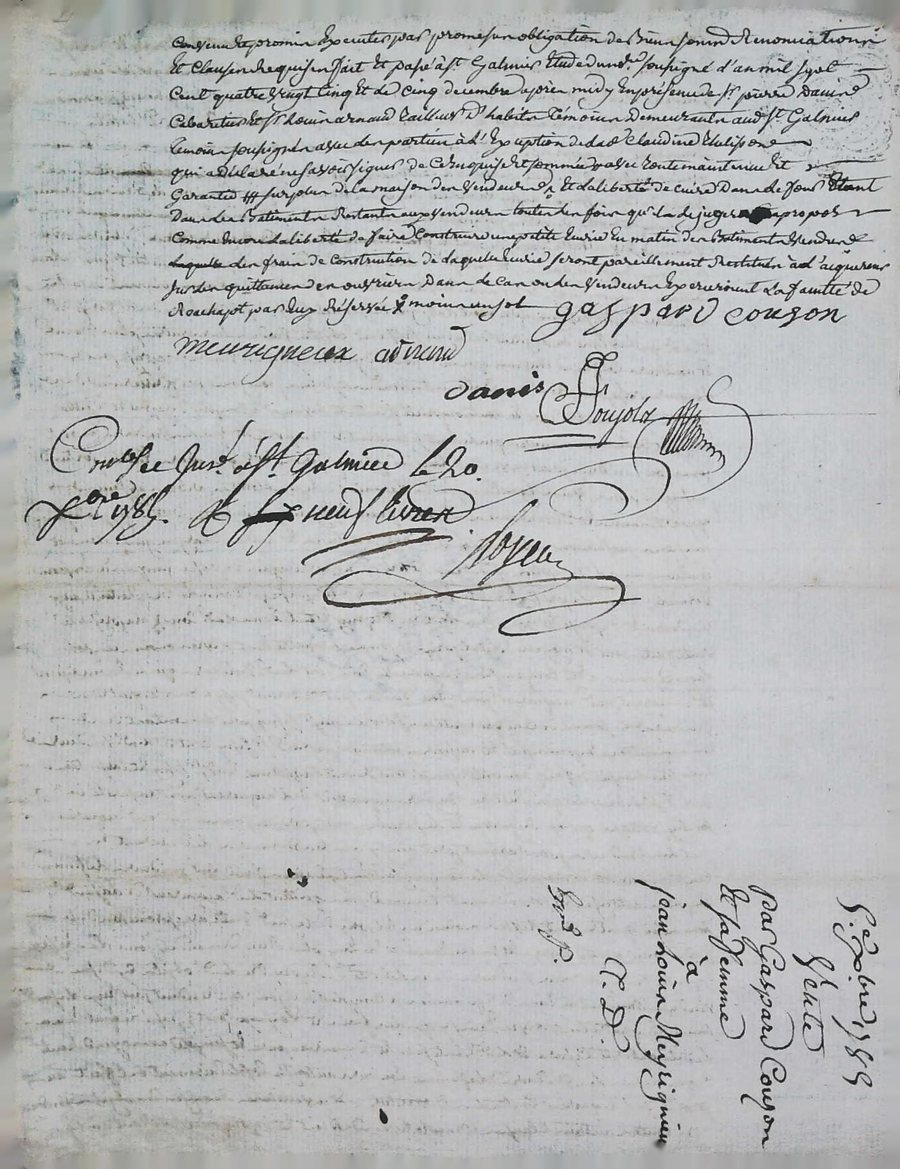 convenu et promis executer par promesse obligation de biens soumis Renonciations
Et Clauses Requises fait Et passé à St. Galmier Etude du no.re soussigné l'an mil sept
Cent quatre vingt Cinq Et le Cinq decembre apres midy En presence de Sr. pierre
Cabaretier Et Sr. Louis arnaud tailleur d'habits temoins Demeurants aud St. Galmier
temoins soussignés avec les parties à l'Exception de lad.e Claudine
qui a declaré ne savoir signer de Ce requise Et sommée
Garantie surjour de la maison des vendeurs Et la liberté de cuire Dans le four Etant
Dans les Batiments Restants aux vendeurs toutes les fois qu'il le jugera apropos
Comme Encore la liberté de faire Construire une petite Ecurie En matin des Batiments vendus
les frais de Construction de laquelle Ecurie seront pareillement Restitués à l'aiquereur
sur les quittances des ouvriers Dans le Cas ou les vendeurs Exerceroient La faculté de
Reachapt par Eux Réservée moins un sol
gaspard couzon
meurigneux arnaud
danis
Soujols
Con.lé et Insé. à St. Galmier le 20.
Xbre 1785. R neuf livres
5.e Xbre 1785
Vente
par Gaspard Couzon
Et sa femme
à
jean Louis Meyrignieu
C. D.